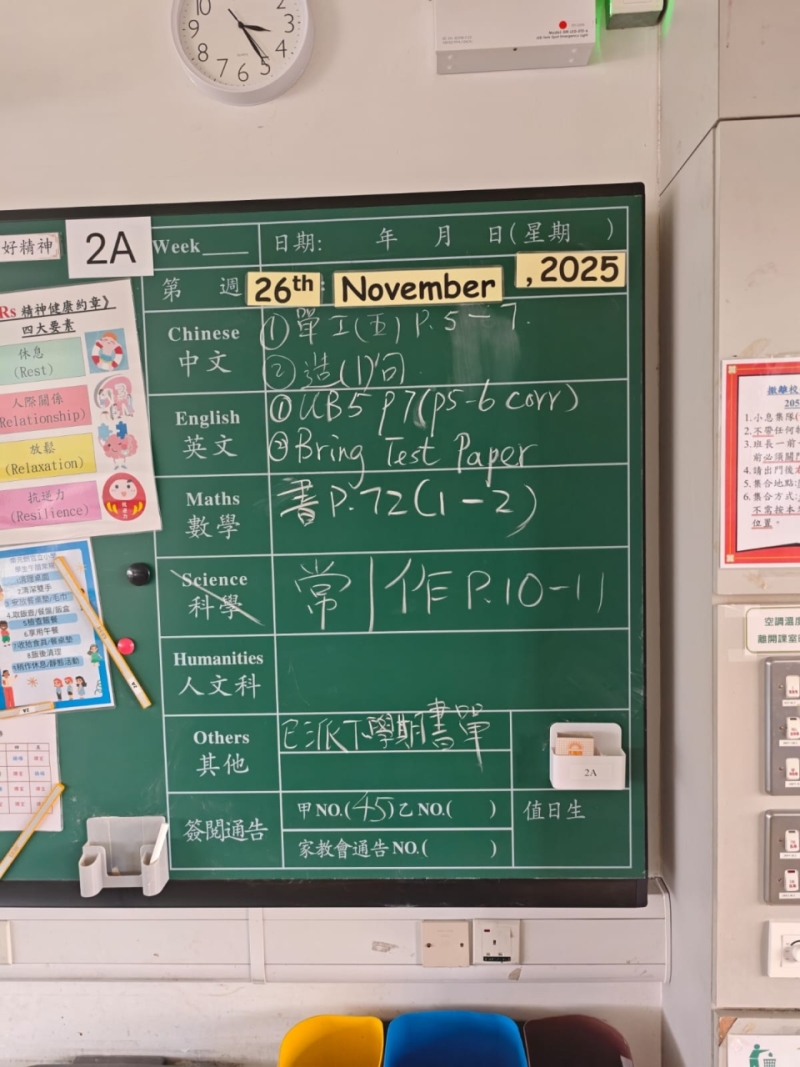 10
2
9
3
8
4
7
6
5
好精神
2A
Week
日期: 年 月 日(星期 )
第 週
26th November , 2025
Rs 精神健康約章》
四大要素
休息
(Rest)
人際關係
Relationship)
放鬆
(Relaxation)
抗逆力
(Resilience)
Chinese
中文
①單工(五) P.5-7.
②造(1)句
English
英文
①UB5 P7(P5-6 corr)
②Bring Test Paper
Maths
數學
書P.72(1-2)
Science
科學
常|作P.10-11
Humanities
人文科
Others
其他
已派下學期書單
2A
簽閱通告
甲NO.(45)乙NO.( )
家教會通告NO.( )
值日生
1.小息集隊
2.不帶任何
3.班長一前
前必須關
4.請出門後
5.集合地點:
6.集合方式:
不需按本
位置。
空調溫度
離開課室